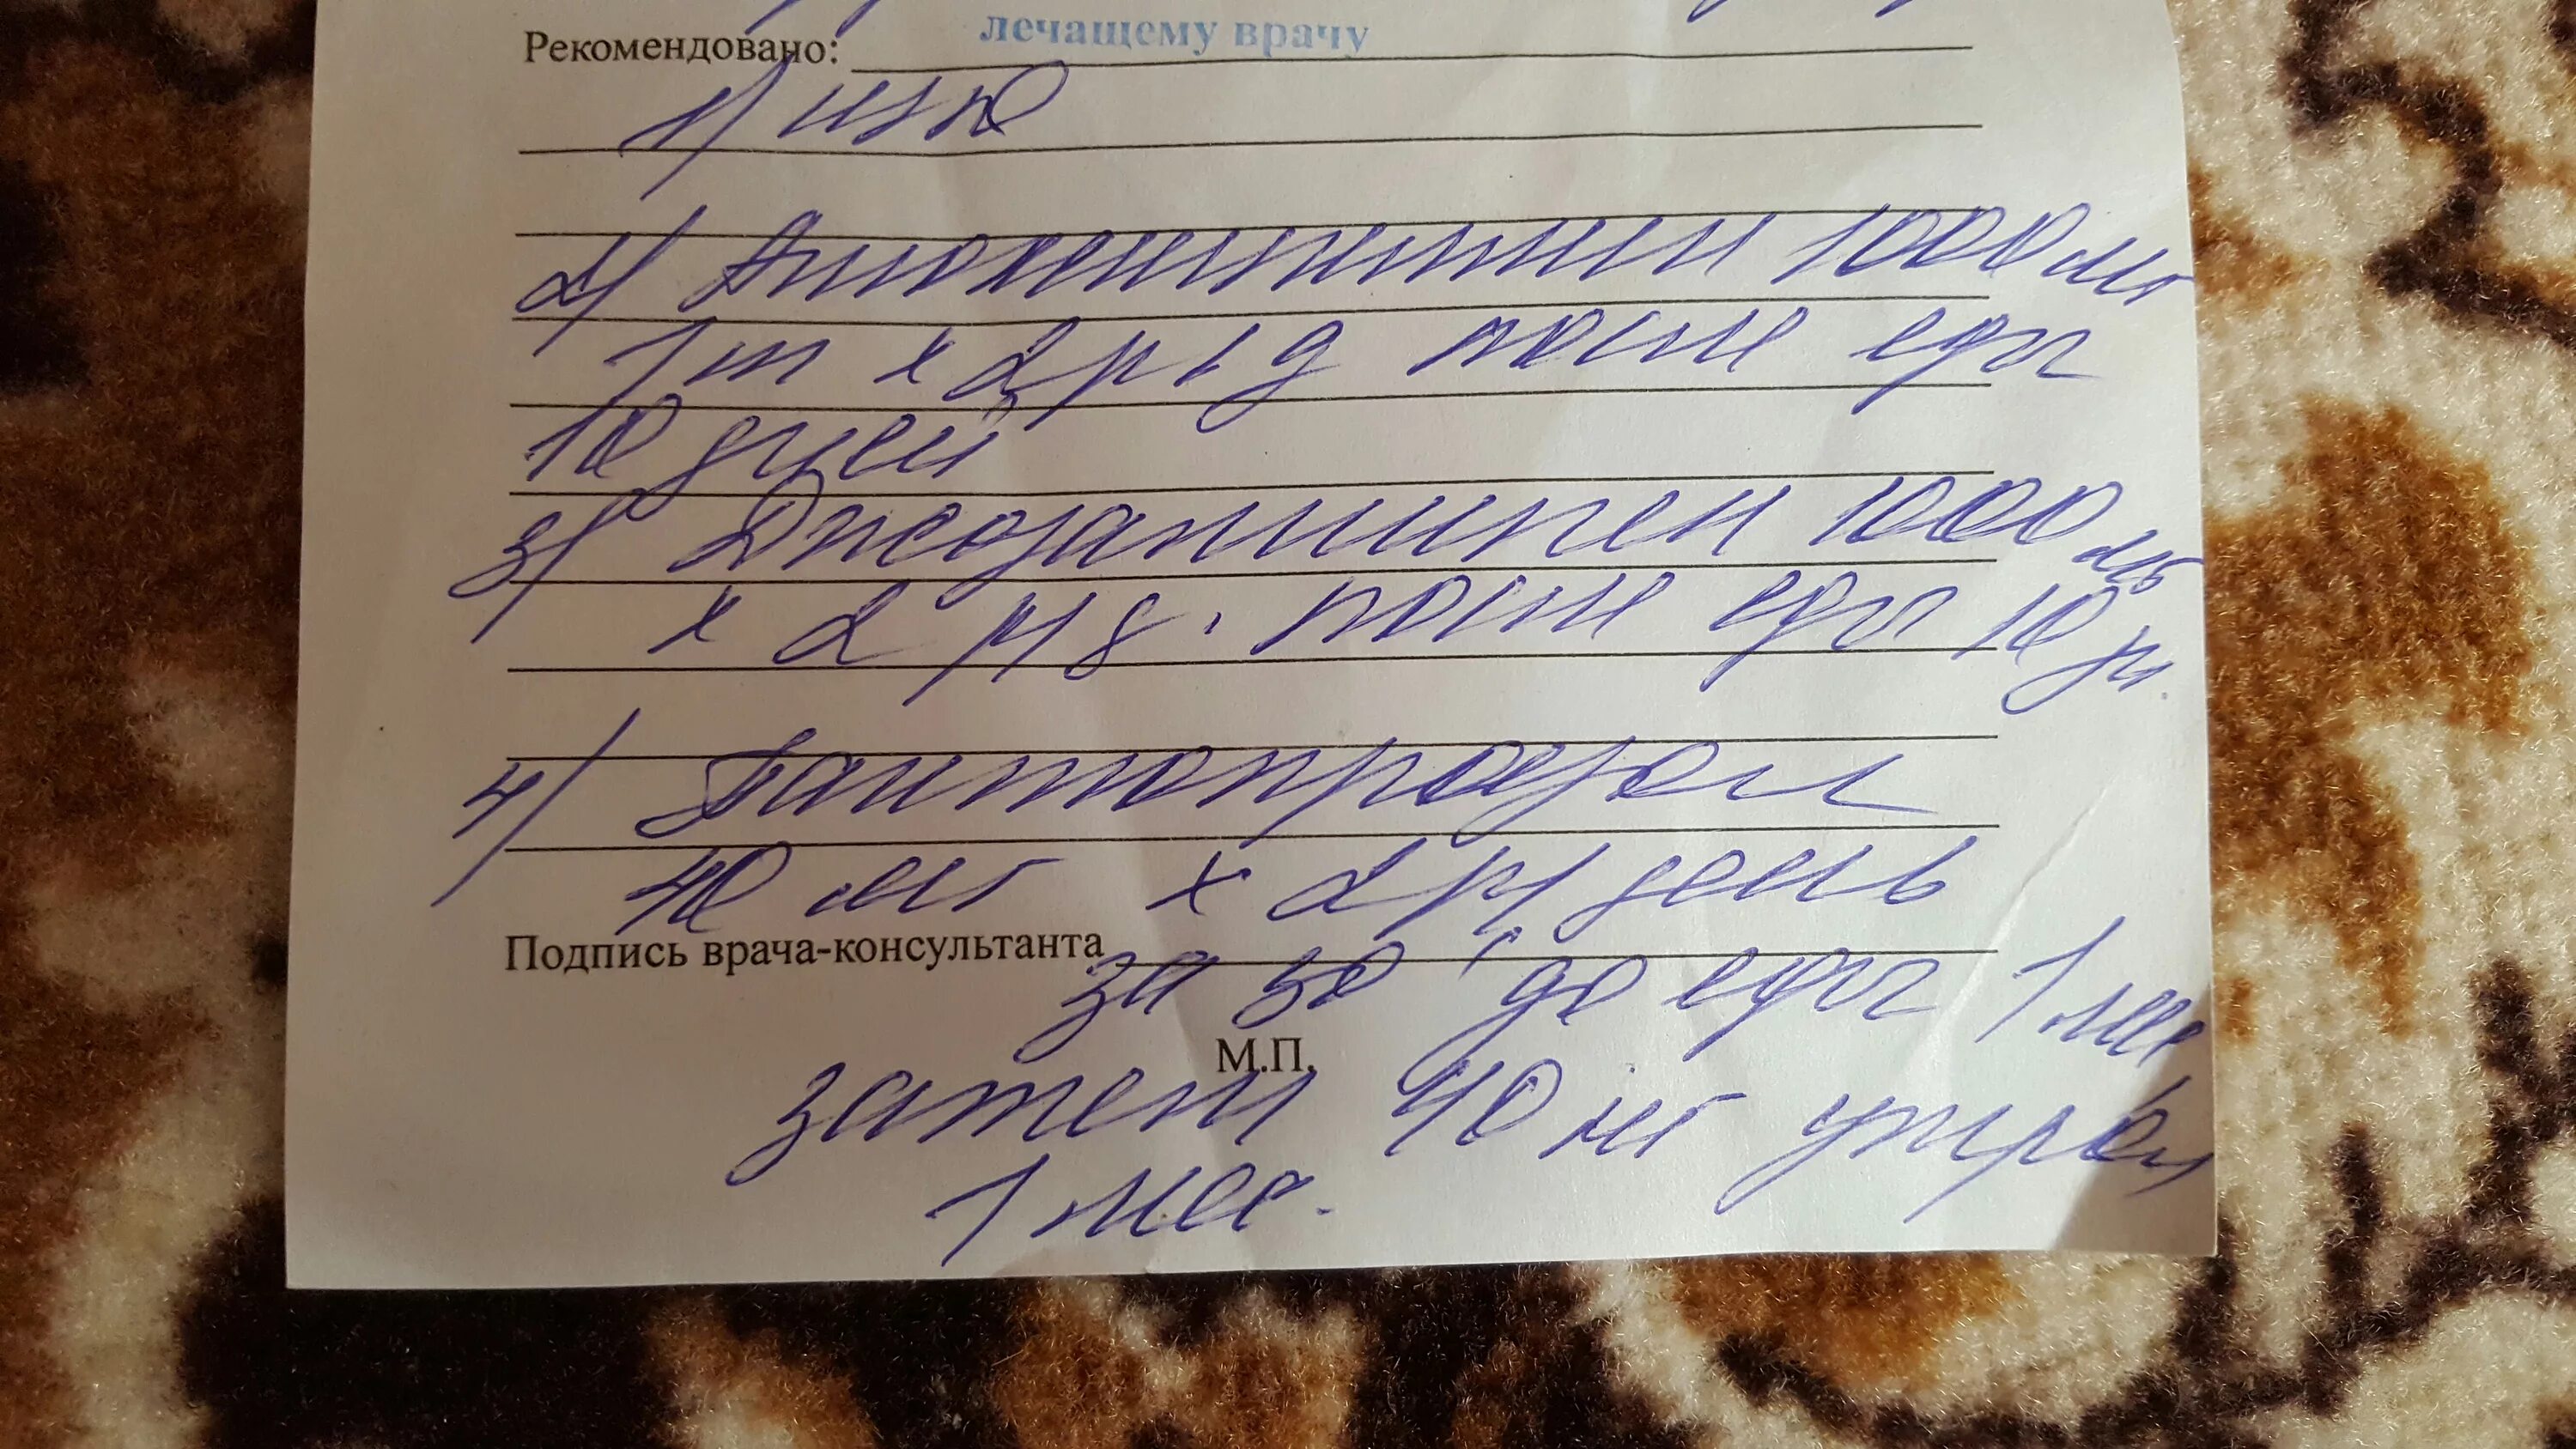 лечащему врачу
Рекомендовано:
1)
2) Амоксициллин 1000 мг
1т х 2р в д после еды
10 дней
3) Джозамицин 1000 мг
х 2 р/д. после еды 10 дн.
4) Пантопразол
40 мг х 2р/день
Подпись врача-консультанта
за 30' до еды 1 мес
М.П.
затем 40 мг утром
1 мес.